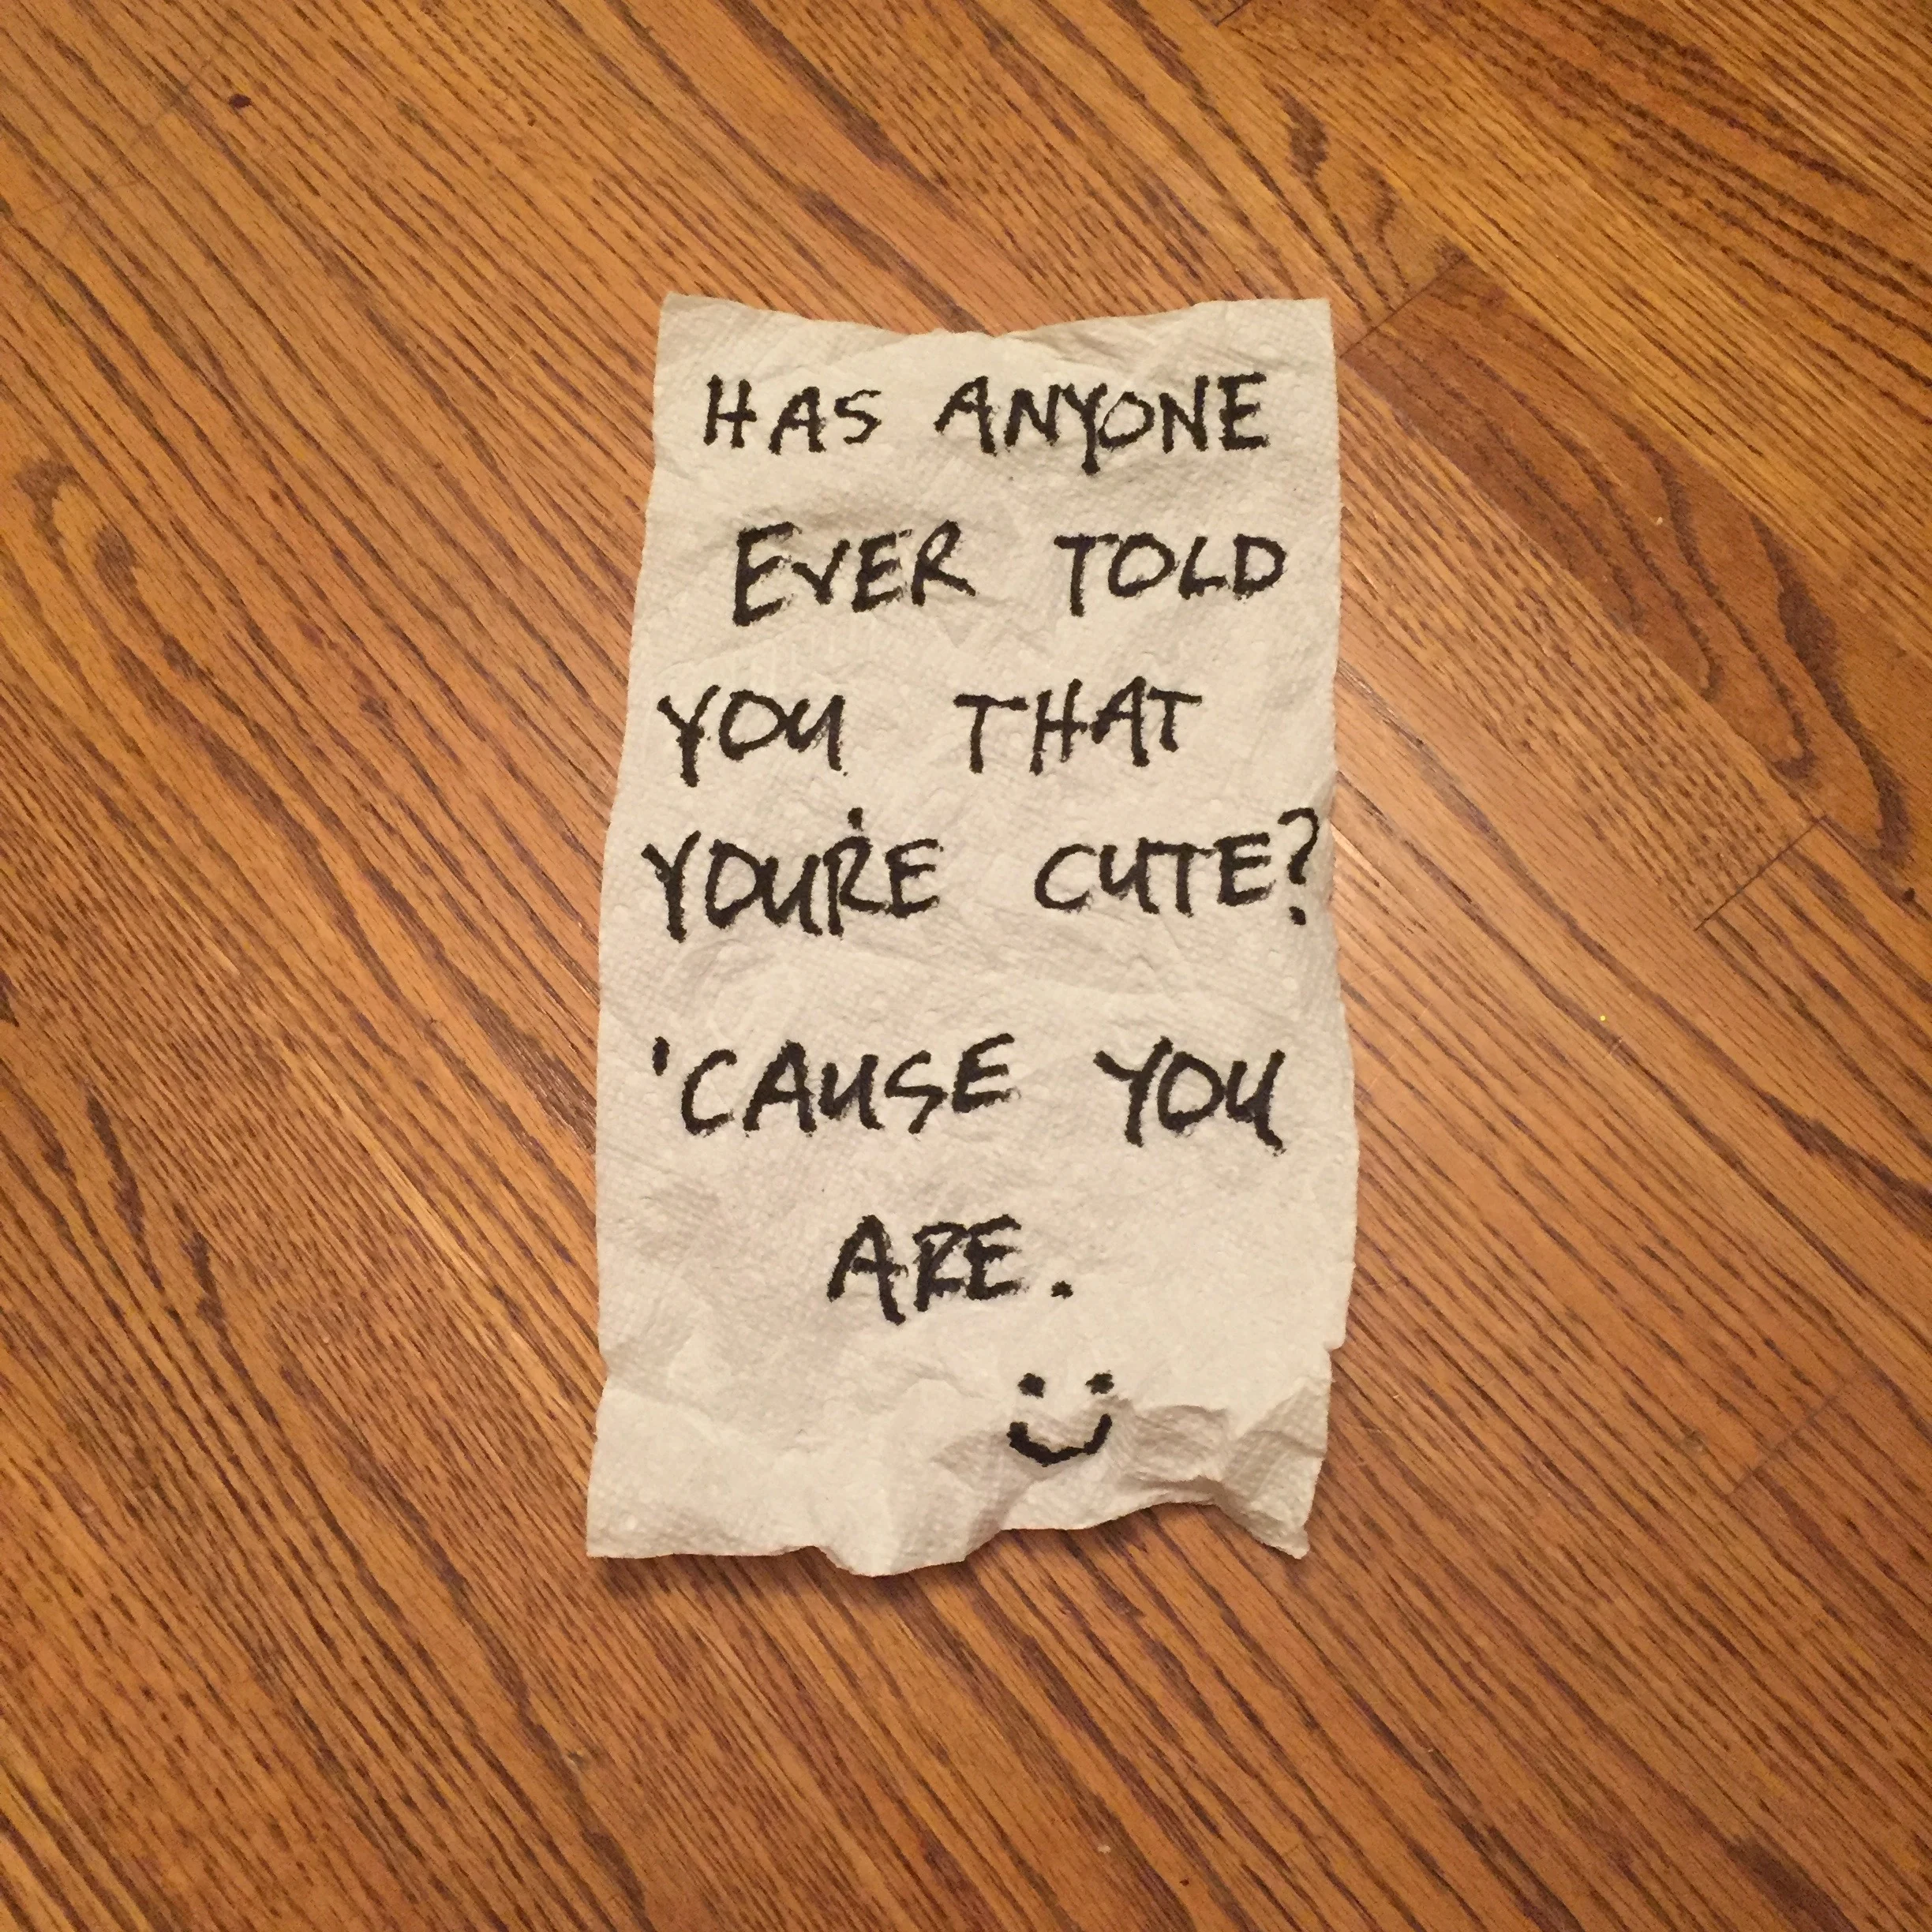 HAS ANYONE
EVER TOLD
YOU THAT
YOU'RE CUTE?
'CAUSE YOU
ARE.